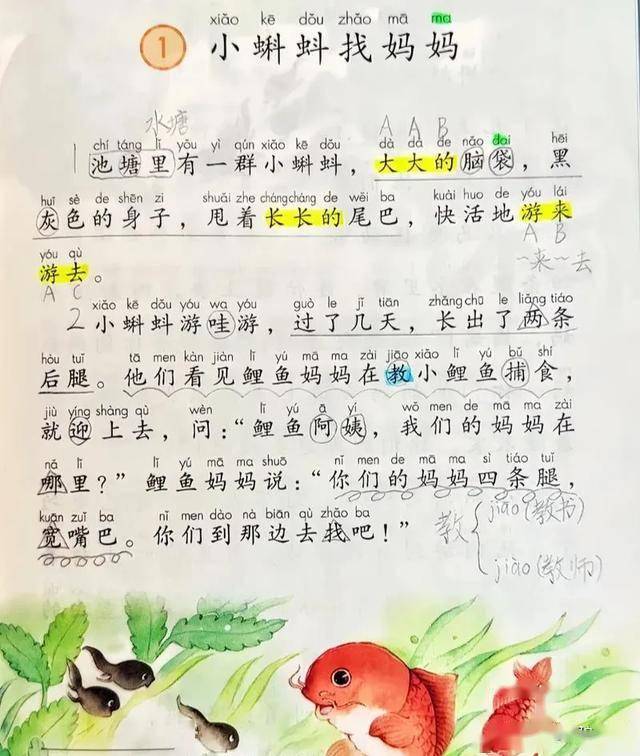 xiǎo kē dǒu zhǎo mā ma
1 小蝌蚪找妈妈
水塘 A A B
chí táng lǐ yǒu yì qún xiǎo kē dǒu dà dà de nǎo dai hēi
1 池塘里有一群小蝌蚪，大大的脑袋，黑
huī sè de shēn zi shuǎi zhe cháng cháng de wěi ba kuài huo de yóu lái
灰色的身子，甩着长长的尾巴，快活地游来
A B
yóu qù
游去。
A C
~来~去
xiǎo kē dǒu yóu wa yóu guò le jǐ tiān zhǎng chū le liǎng tiáo
2 小蝌蚪游哇游，过了几天，长出了两条
hòu tuǐ tā men kàn jiàn lǐ yú mā ma zài jiāo xiǎo lǐ yú bǔ shí
后腿。他们看见鲤鱼妈妈在教小鲤鱼捕食，
jiù yíng shàng qù wèn lǐ yú ā yí wǒ men de mā ma zài
就迎上去，问：“鲤鱼阿姨，我们的妈妈在
nǎ lǐ lǐ yú mā ma shuō nǐ men de mā ma sì tiáo tuǐ
哪里？”鲤鱼妈妈说：“你们的妈妈四条腿，
kuān zuǐ ba nǐ men dào nà biān qù zhǎo ba
宽嘴巴。你们到那边去找吧！”
教 jiāo（教书）
jiào（教师）